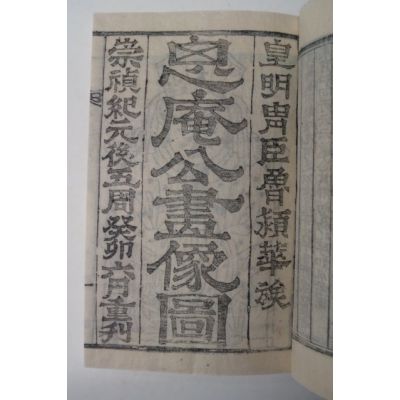 皇明冑臣魯穎華族
恖庵公畫像圖
崇禎紀元後五周癸卯六月重刊